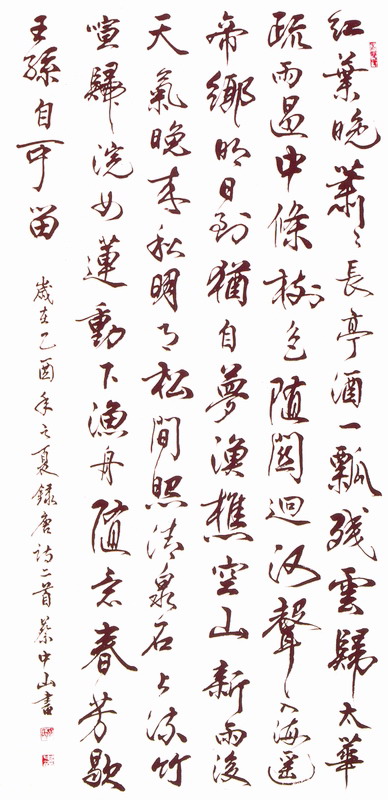 紅葉晚蕭〻長亭酒一瓢残雲歸太華
疏雨過中條樹色随關迥河聲入海遥
帝鄉明日到猶自夢漁樵空山新雨後
天氣晚来秋明月松間照清泉石上流竹
喧歸浣女蓮動下漁舟随意春芳歇
王孫自可留
歲在乙酉年之夏錄唐詩二首蔡中山書